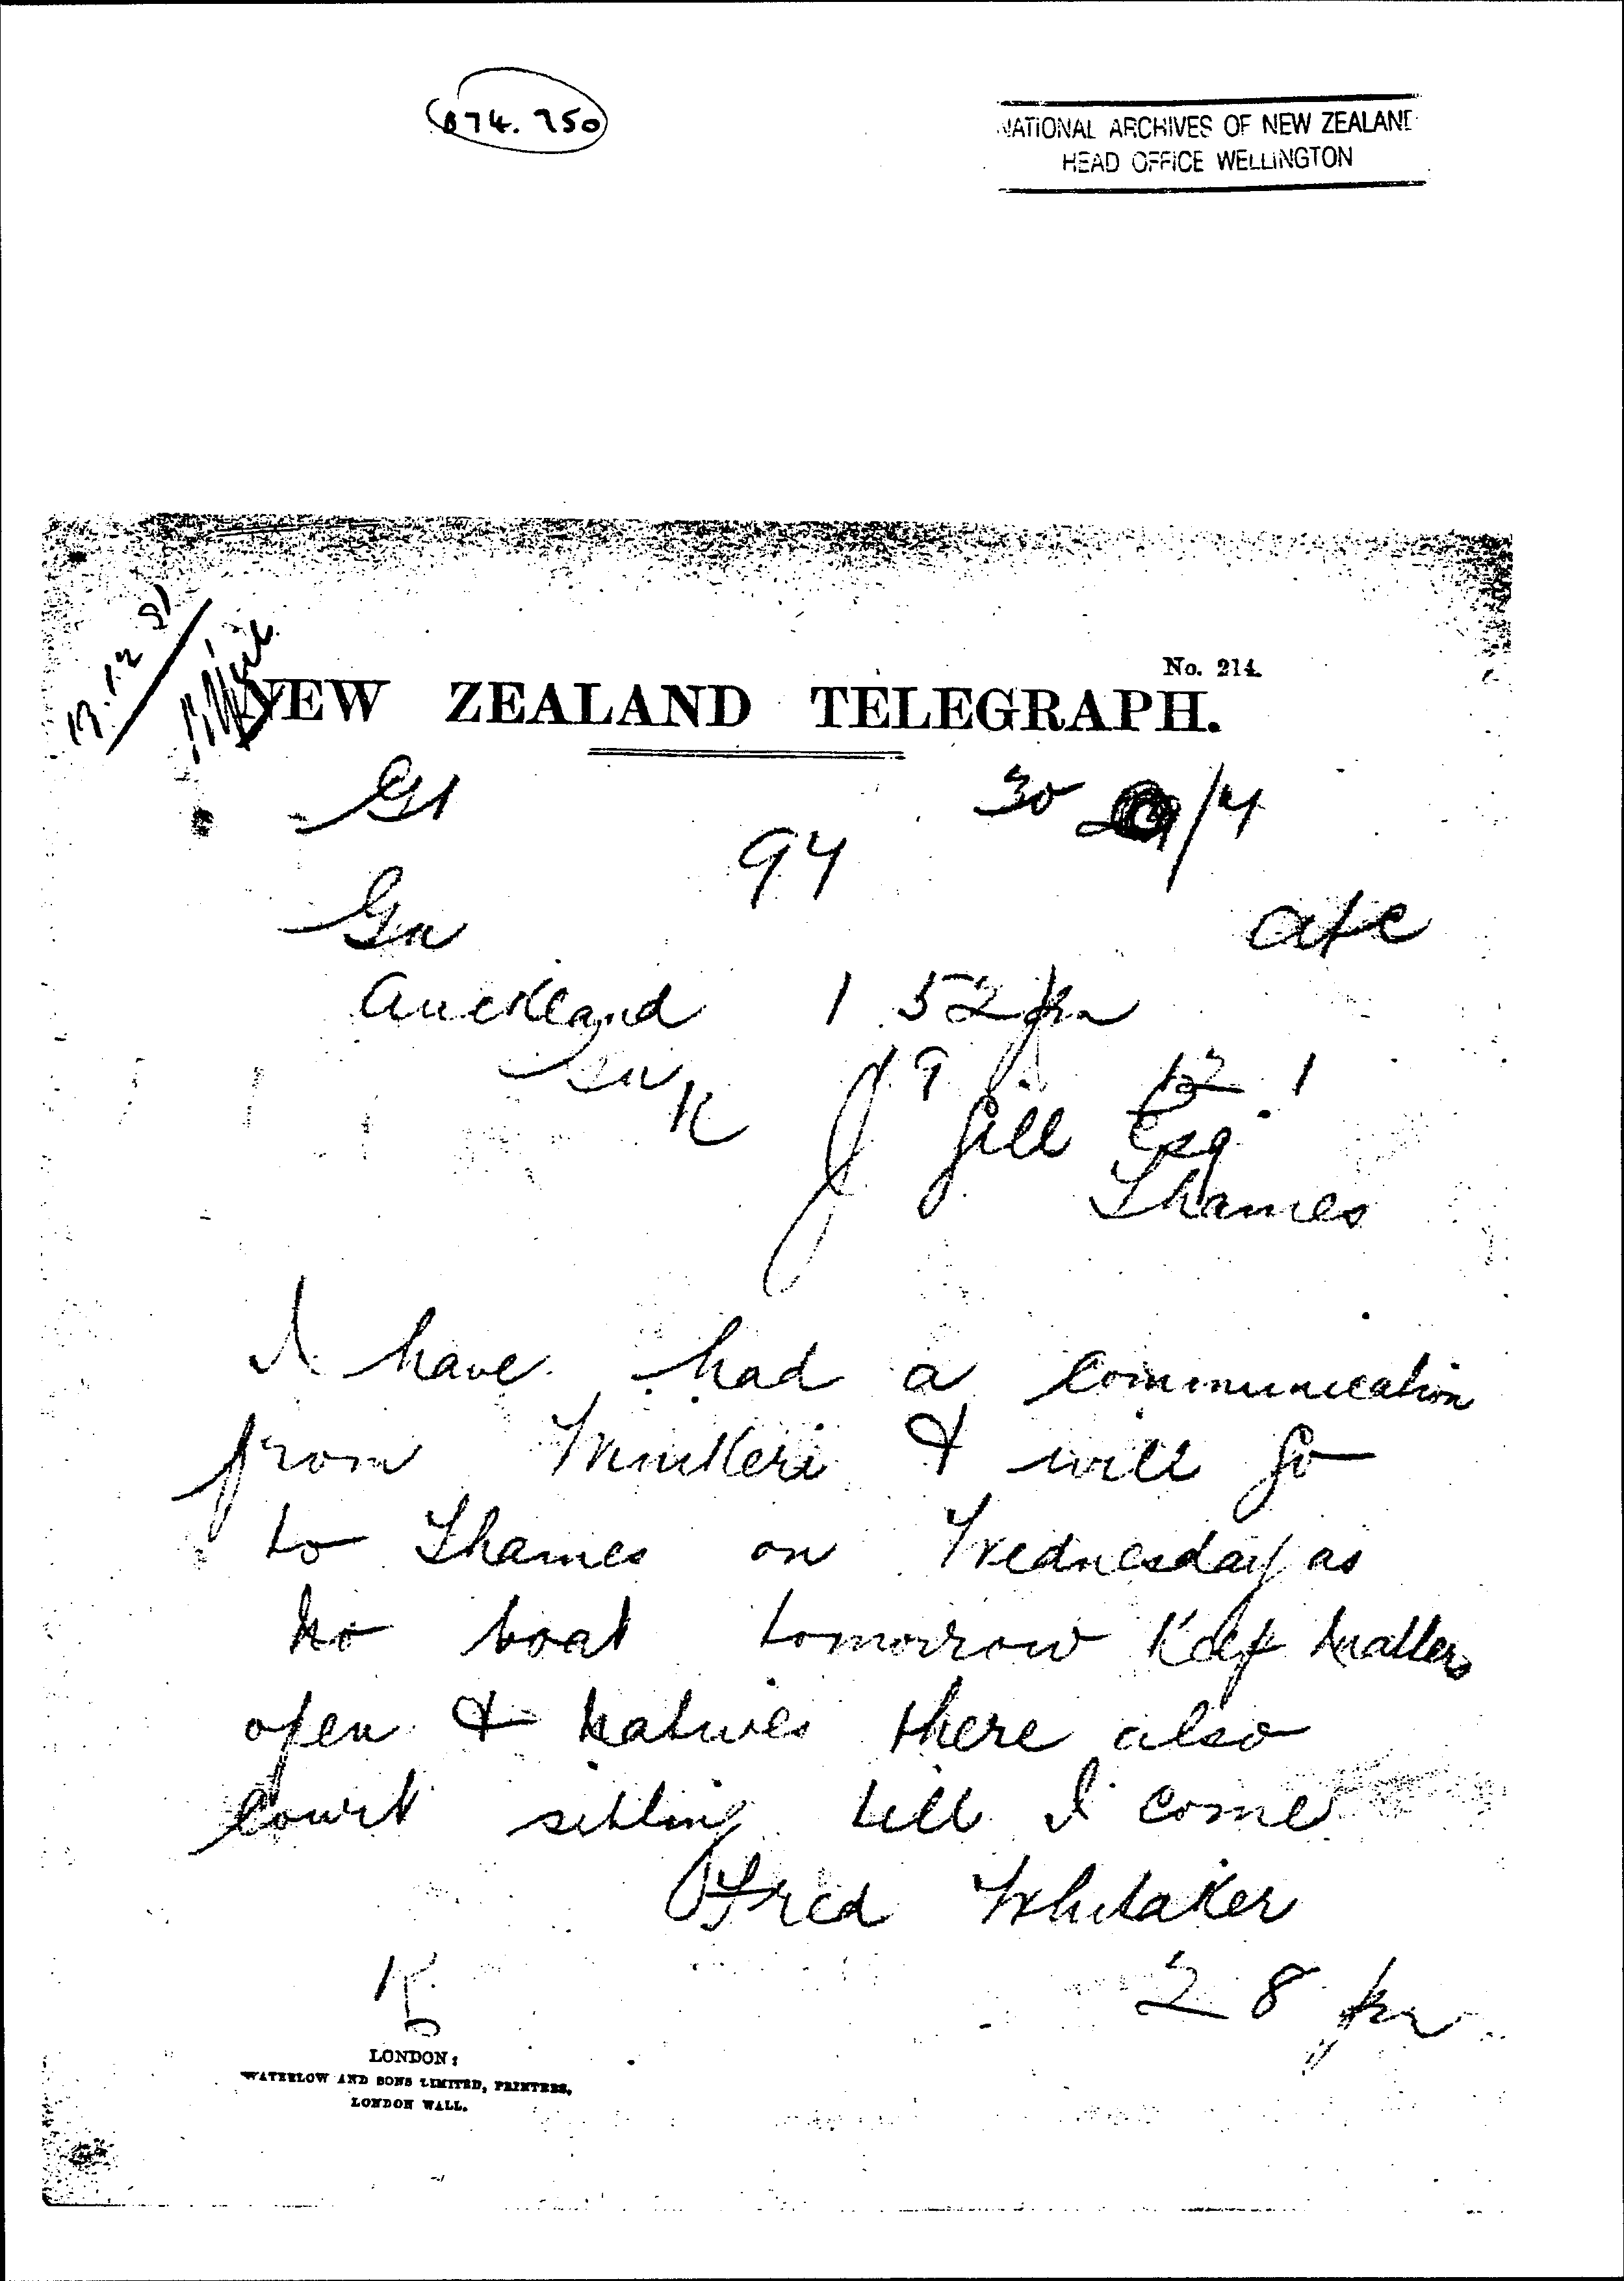 874.250
NATIONAL ARCHIVES OF NEW ZEALAND
HEAD OFFICE WELLINGTON
No. 214.
NEW ZEALAND TELEGRAPH.
30
94
Gn
Auckland 1 52 pm
12 . 1
J Gill Esq
Thames
I have had a communication
from & will go
to Thames on Wednesday as
no boat tomorrow Keep matters
open & natives there also
Court sitting till I come
Fred Whitaker
2 8 pm
LONDON:
WATERLOW AND SONS LIMITED, PRINTERS,
LONDON WALL.